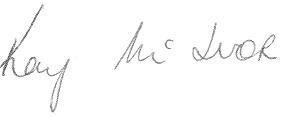 Kay Mc IVOR